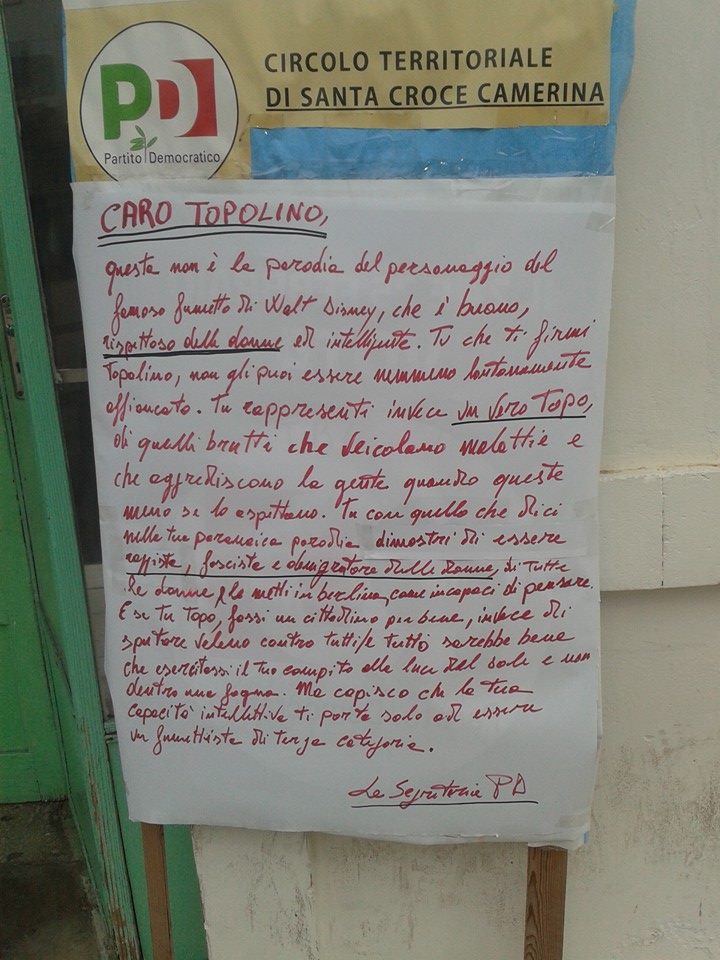 PD
Partito Democratico
CIRCOLO TERRITORIALE
DI SANTA CROCE CAMERINA
CARO TOPOLINO,
questa non è la parodia del personaggio del
famoso fumetto di Walt Disney, che è buono,
rispettoso delle donne ed intelligente. Tu che ti firmi
Topolino, non gli puoi essere nemmeno lontanamente
affiancato. Tu rappresenti invece un vero Topo,
di quelli brutti che veicolano malattie e
che aggrediscono la gente quando queste
meno se lo aspettano. Tu con quello che dici
nella tua paranoica parodia dimostri di essere
razzista, fascista e denigratore delle donne, di tutte
le donne, le metti in berlina, come incapaci di pensare.
E se tu Topo, fossi un cittadino per bene, invece di
sputare veleno contro tutti/e tutto sarebbe bene
che esercitassi il tuo compito alla luce del sole e non
dentro una fogna. Ma capisco che la tua
capacità intellettiva ti porta solo ad essere
un fumettista di terza categoria.
La Segreteria PD